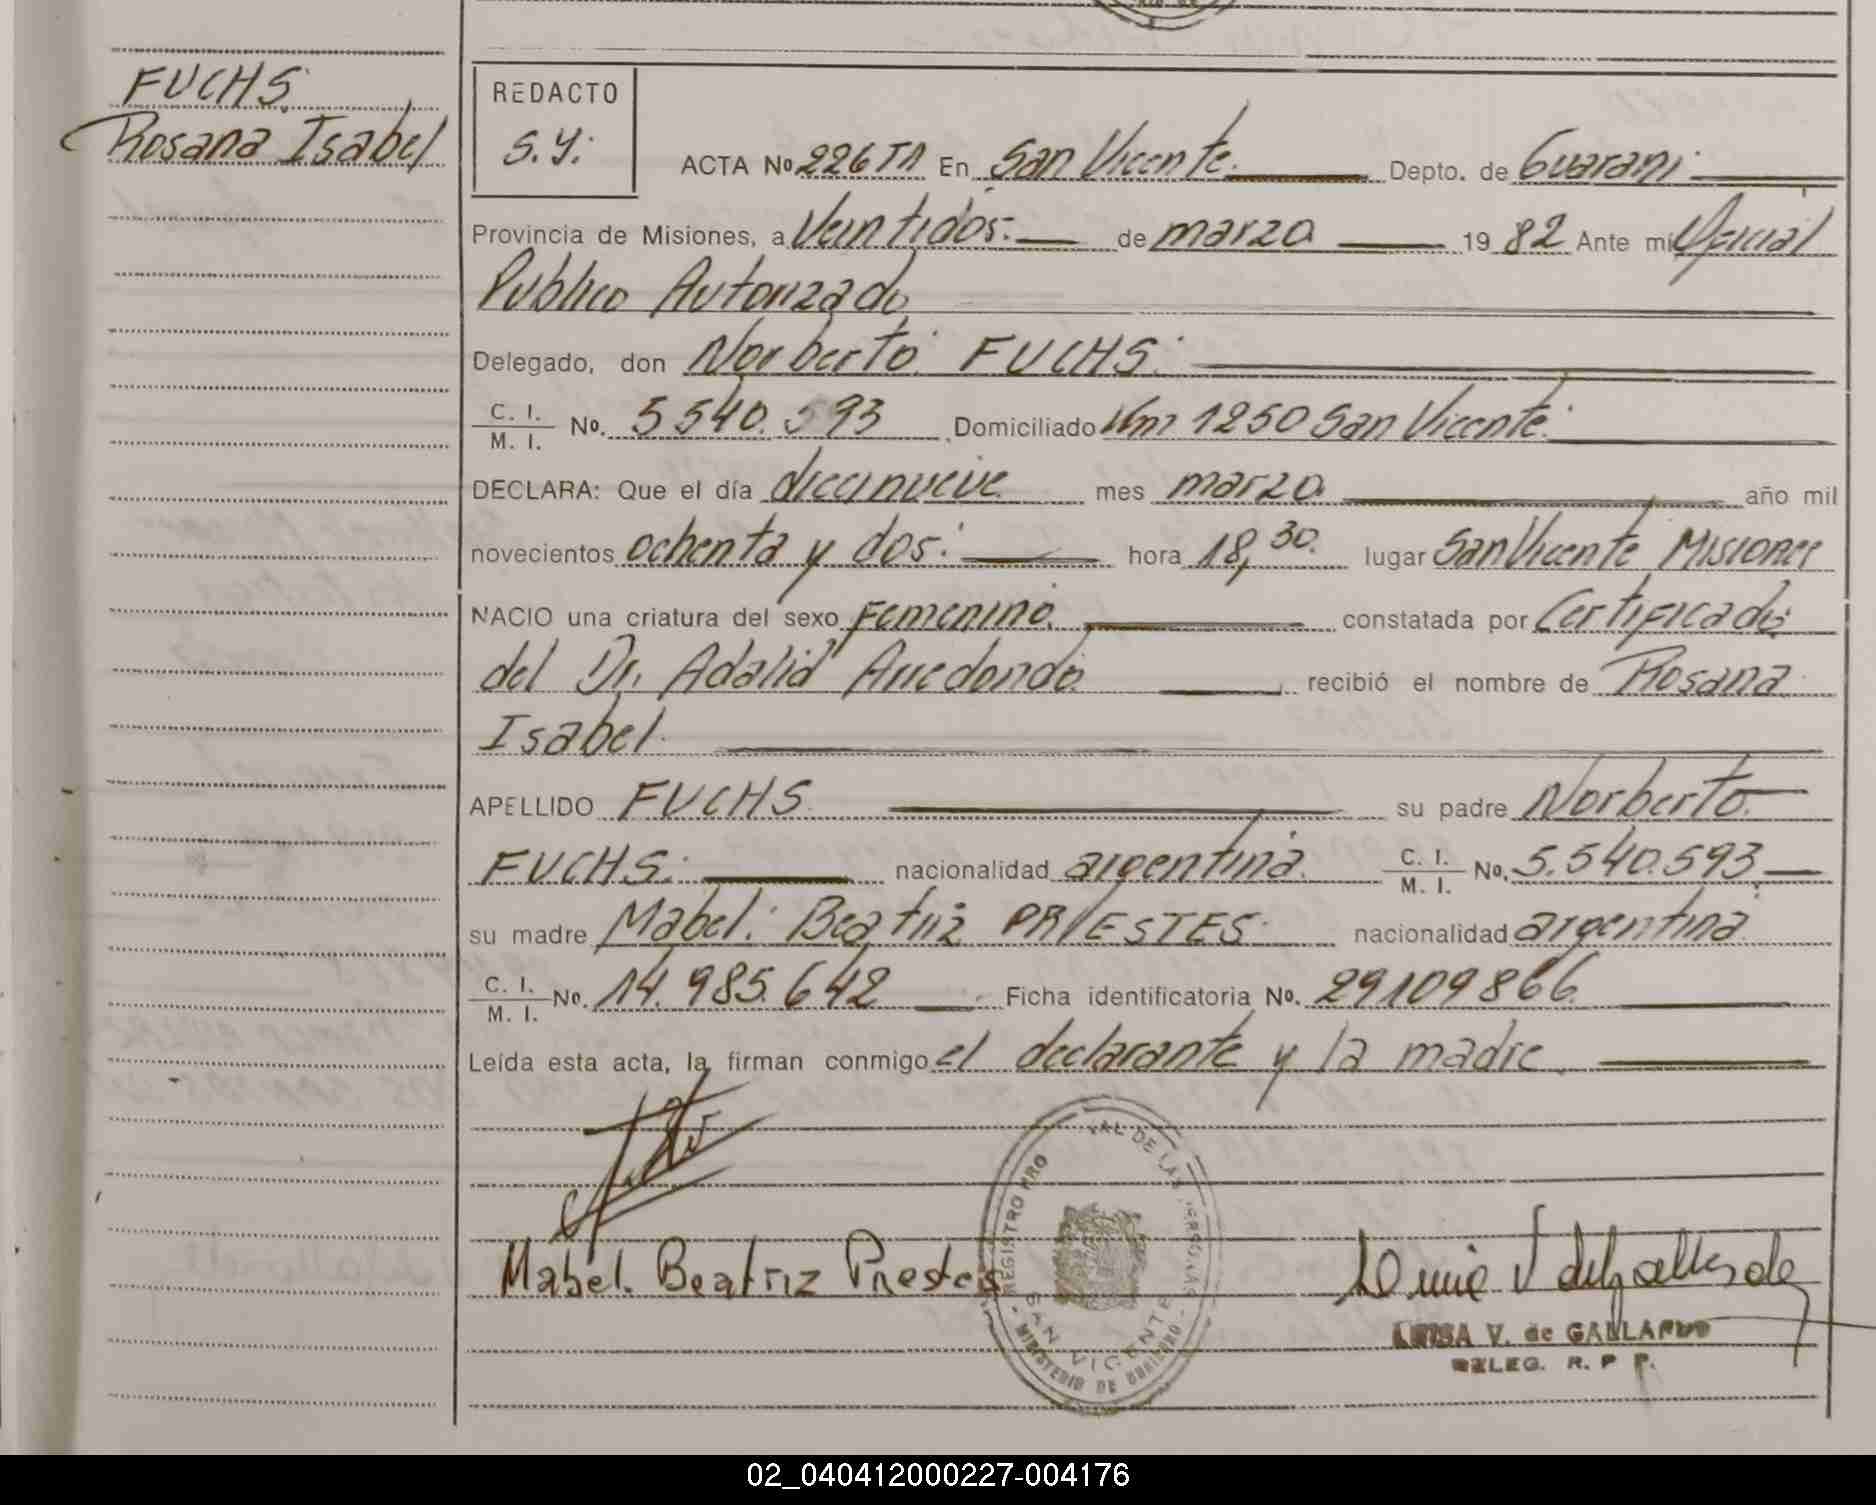 FUCHS.
Rosana Isabel
REDACTO
S.Y:
ACTA No 226 TA En San Vicente. Depto. de Guarani
Provincia de Misiones, a Veintidos: de marzo 19 82 Ante mi Oficial
Publico Autorizado
Delegado, don Norberto FUCHS.
C. I.
M. I. No. 5540.593 Domiciliado Km 1250 San Vicente.
DECLARA: Que el día diecinueve mes marzo año mil
novecientos ochenta y dos: hora 18,30. lugar San Vicente Misiones
NACIO una criatura del sexo Femenino. constatada por Certificado
del Dr. Adalid Arredondo recibió el nombre de Rosana
Isabel.
APELLIDO FUCHS. su padre Norberto
FUCHS: nacionalidad argentina. C. I.
M. I. No. 5.540.593
su madre Mabel. Beatriz PRESTES nacionalidad argentina
C. I.
M. I. No. 14.985.642 Ficha identificatoria No. 29109866
Leída esta acta, la firman conmigo el declarante y la madre
REGISTRO PRO VIAL DE LAS PERSONAS
SAN VICENTE
MINISTERIO DE GOBIERNO
Mabel. Beatriz Prestes
Luisa V de Gallardo
LUISA V. de GALLARDO
DELEG. R. P P.
02_040412000227-004176